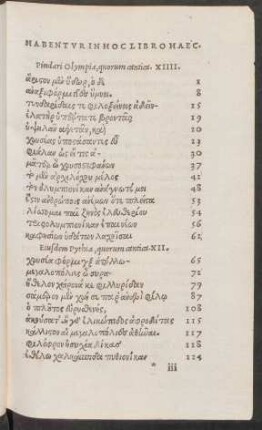 HABENTVR IN HOC LIBRO HAEC.
Pindari Olympia, quorum 
ἄριστον μὲν ὕδωρ, ὁ δὲ 1
ἀναξιφόρμιγγες ὕμνοι 8
15
ἐλατὴρ ὑπέρτατε βροντᾶς 19
ὑψηλᾶν ἀρετᾶν, καὶ 20
χρυσέας ὑποστάσαντες 23
φιάλαν ὡς εἴ τις ἀ- 30
μᾶτερ ὦ χρυσοστεφάνων 37
τὸ μὲν ἀρχιλόχου μέλος 41
τὸν ὀλυμπιονίκαν ἀνάγνωτέ μοι 48
ἔστιν ἀνθρώποις ἀνέμων ὅτε πλεῖστα 53
λίσσομαι παῖ ζηνὸς ἐλευθερίου 54
τρισολυμπιονίκαν ἐπαινέων 56
καφισίων ὑδάτων λαχοῖσαι 62
Eiusdem Pythia, quorum XII.
χρυσέα φόρμιγξ ἀπόλλω- 65
μεγαλοπόλιες ὦ συρα- 72
ἤθελον χείρωνά κε φιλλυρίδαν 79
σάμερον μὲν χρή σε παρ' ἀνδρὶ φίλῳ 87
ὁ πλοῦτος εὐρυσθενὴς 108
ἀκούσατ' ἢ γὰρ ἑλικώπιδος ἀφροδίτας 115
κάλλιστον αἱ μεγαλοπόλιες ἀθᾶναι 117
φιλόφρον ἡσυχία δίκας 118
ἐθέλω χαλκάσπιδα πυθιονίκαν 124
* iii